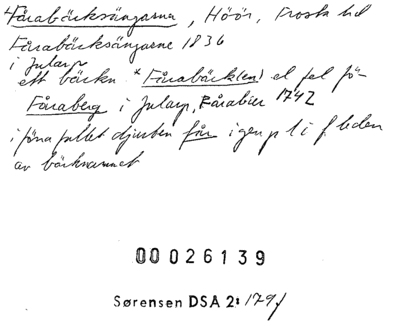 Fårabäcksängarna, Höör, Frosta hd
Fårabäcksängarne 1836
i Jularp
ett bäckn *Fårabäck(en) el fel fö-
Fåraberg i Jularp, Fårabier 1742
i förra fallet djurben får i gen pl i f leden
av bäcknamnet
00026139
Sørensen DSA 2: 179f